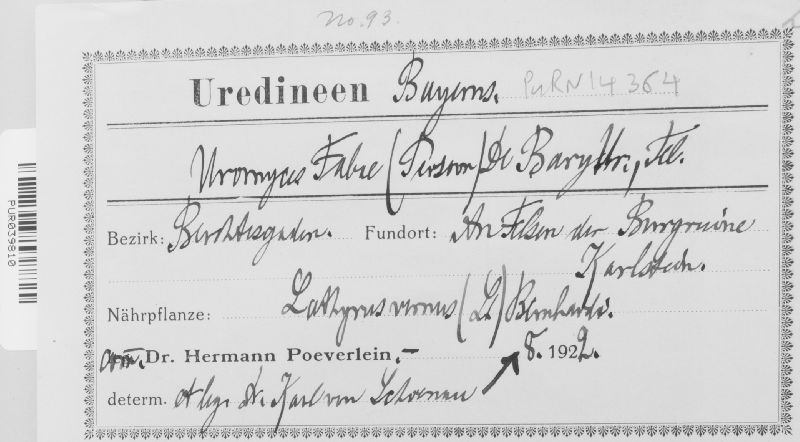 No. 93.
Uredineen Bayerns. PURN14364
Uromyces Fabae (Persoon) De Bary ttr., Tel.
Bezirk: Berchtesgaden. Fundort: An Felsen der Burgruine
Karlstein.
Nährpflanze: Lathyrus vernus (L.) Bernhardi.
com. Dr. Hermann Poeverlein.- 8. 1922.
determ. et leg. Dr. Karl von Schoenau
PUR039810